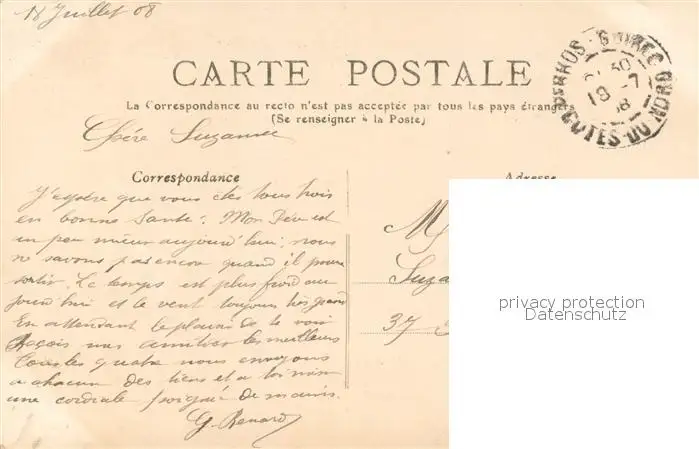 18 Juillet 08
PERROS-GUIREC
19 -7
08
COTES-DU-NORD
CARTE POSTALE
La Correspondance au recto n'est pas acceptée par tous les pays étrangers
(Se renseigner à la Poste)
Chère Suzanne
Correspondance
Adresse
J'espère que vous êtes tous trois
en bonne santé. Mon Père est
un peu mieux aujourd'hui; nous
ne savons pas encore quand il pourra
sortir. Le temps est plus froid au
jourd'hui et le vent toujours très grand
En attendant le plaisir de te voir
Reçois mes amitiés les meilleurs
Tous les quatre nous envoyons
a chacun des tiens et a toi
une cordiale poignée de mains.
G. Renard
M
Suza
37
privacy protection
Datenschutz